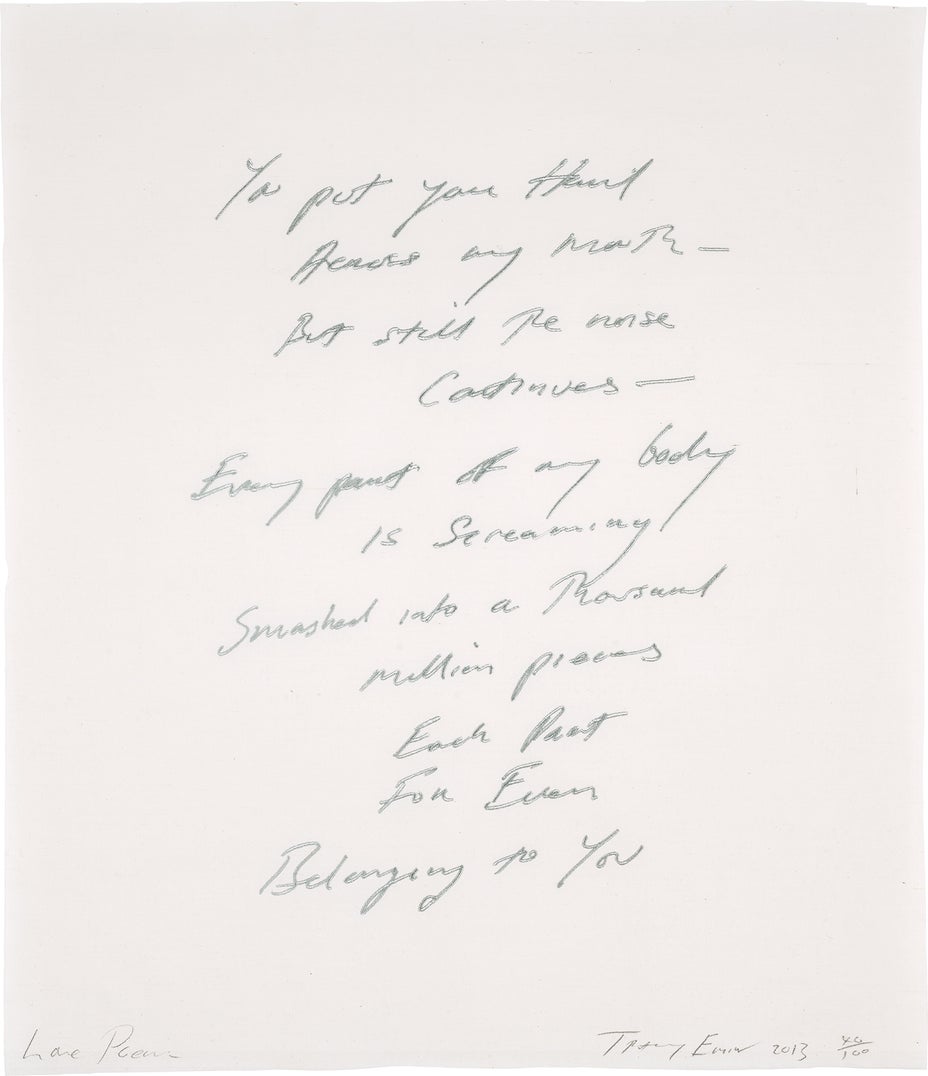 You put your Hand
Across my mouth —
But still the noise
Continues —
Every part of my body
is Screaming
Smashed into a Thousand
million pieces
Each Part
For Ever
Belonging to You
Love Poem
Tracey Emin 2013
/100